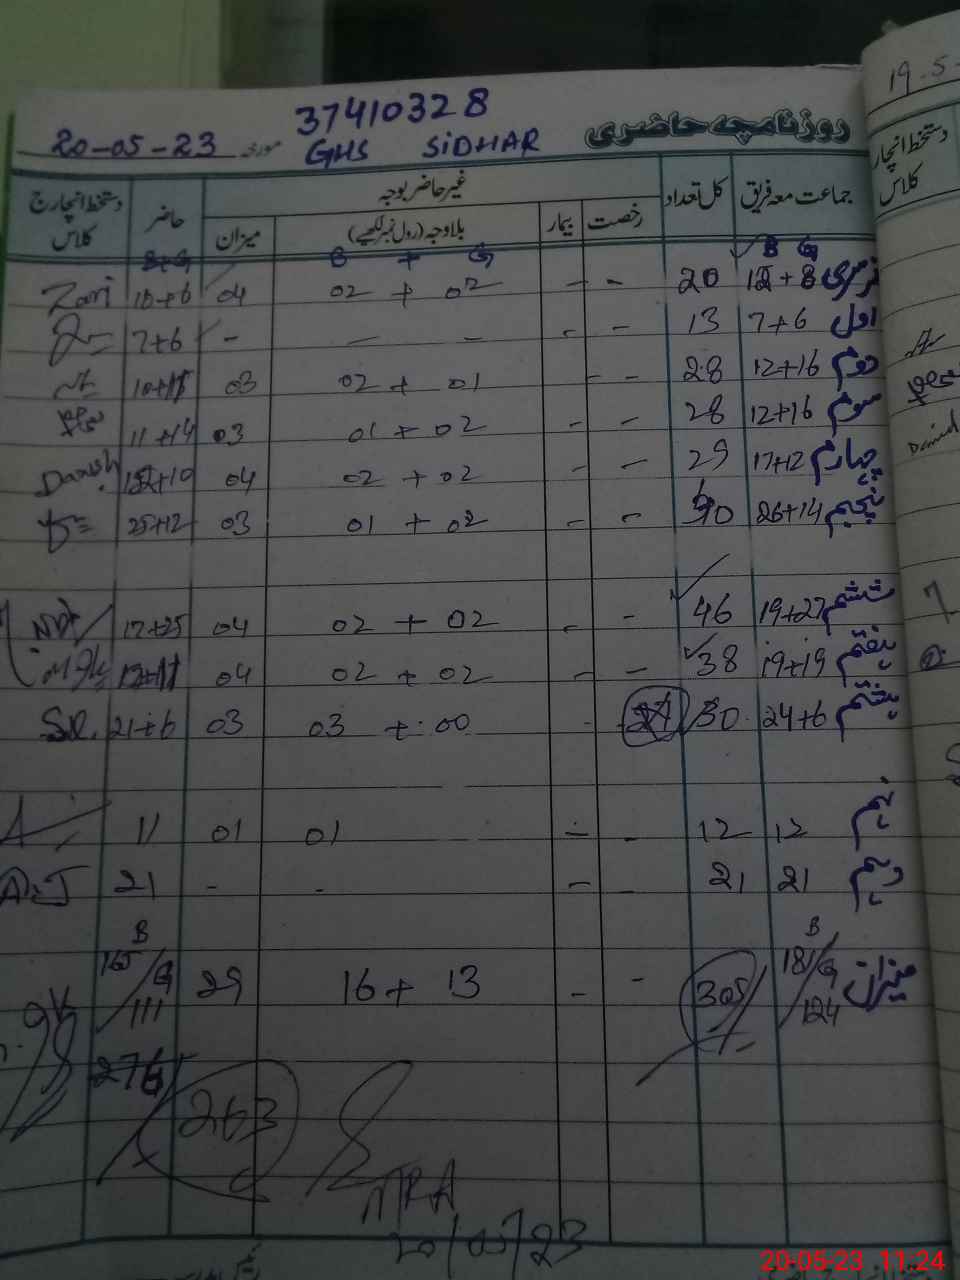 37410328
روزنامچہ حاضری GHS SIDHAR مورخہ 20-05-23
جماعت معہ فریق کل تعداد غیر حاضر بوجہ حاضر دستخط انچارج کلاس
رخصت بیمار بلاوجہ (رول نمبر لکھیے) میزان
B G B + G B+G
نرسری 12 + 8 20 - - 02 + 02 04 10+6
اول 7+6 13 - - - - - 7+6
دوم 12+16 28 - - 02 + 01 03
سوم 12+16 28 - - 01 + 02 03 11+14
چہارم 17+12 29 - - 02 + 02 04 Danish
پنجم 26+14 40 - - 01 + 02 03 25+12
ششم 19+27 46 - - 02 + 02 04 17+25
ہفتم 19+19 38 - - 02 + 02 04
ہشتم 24+6 30 - 03 + 00 03 21+6
نہم 12 12 - - 01 01 11
دہم 21 21 - - - - 21
میزان B 181/G 124 305 - - 16 + 13 29 B 165/G 111
276
263
MEA
20/05/23
19-5-
دستخط انچارج
کلاس
20-05-23 11:24